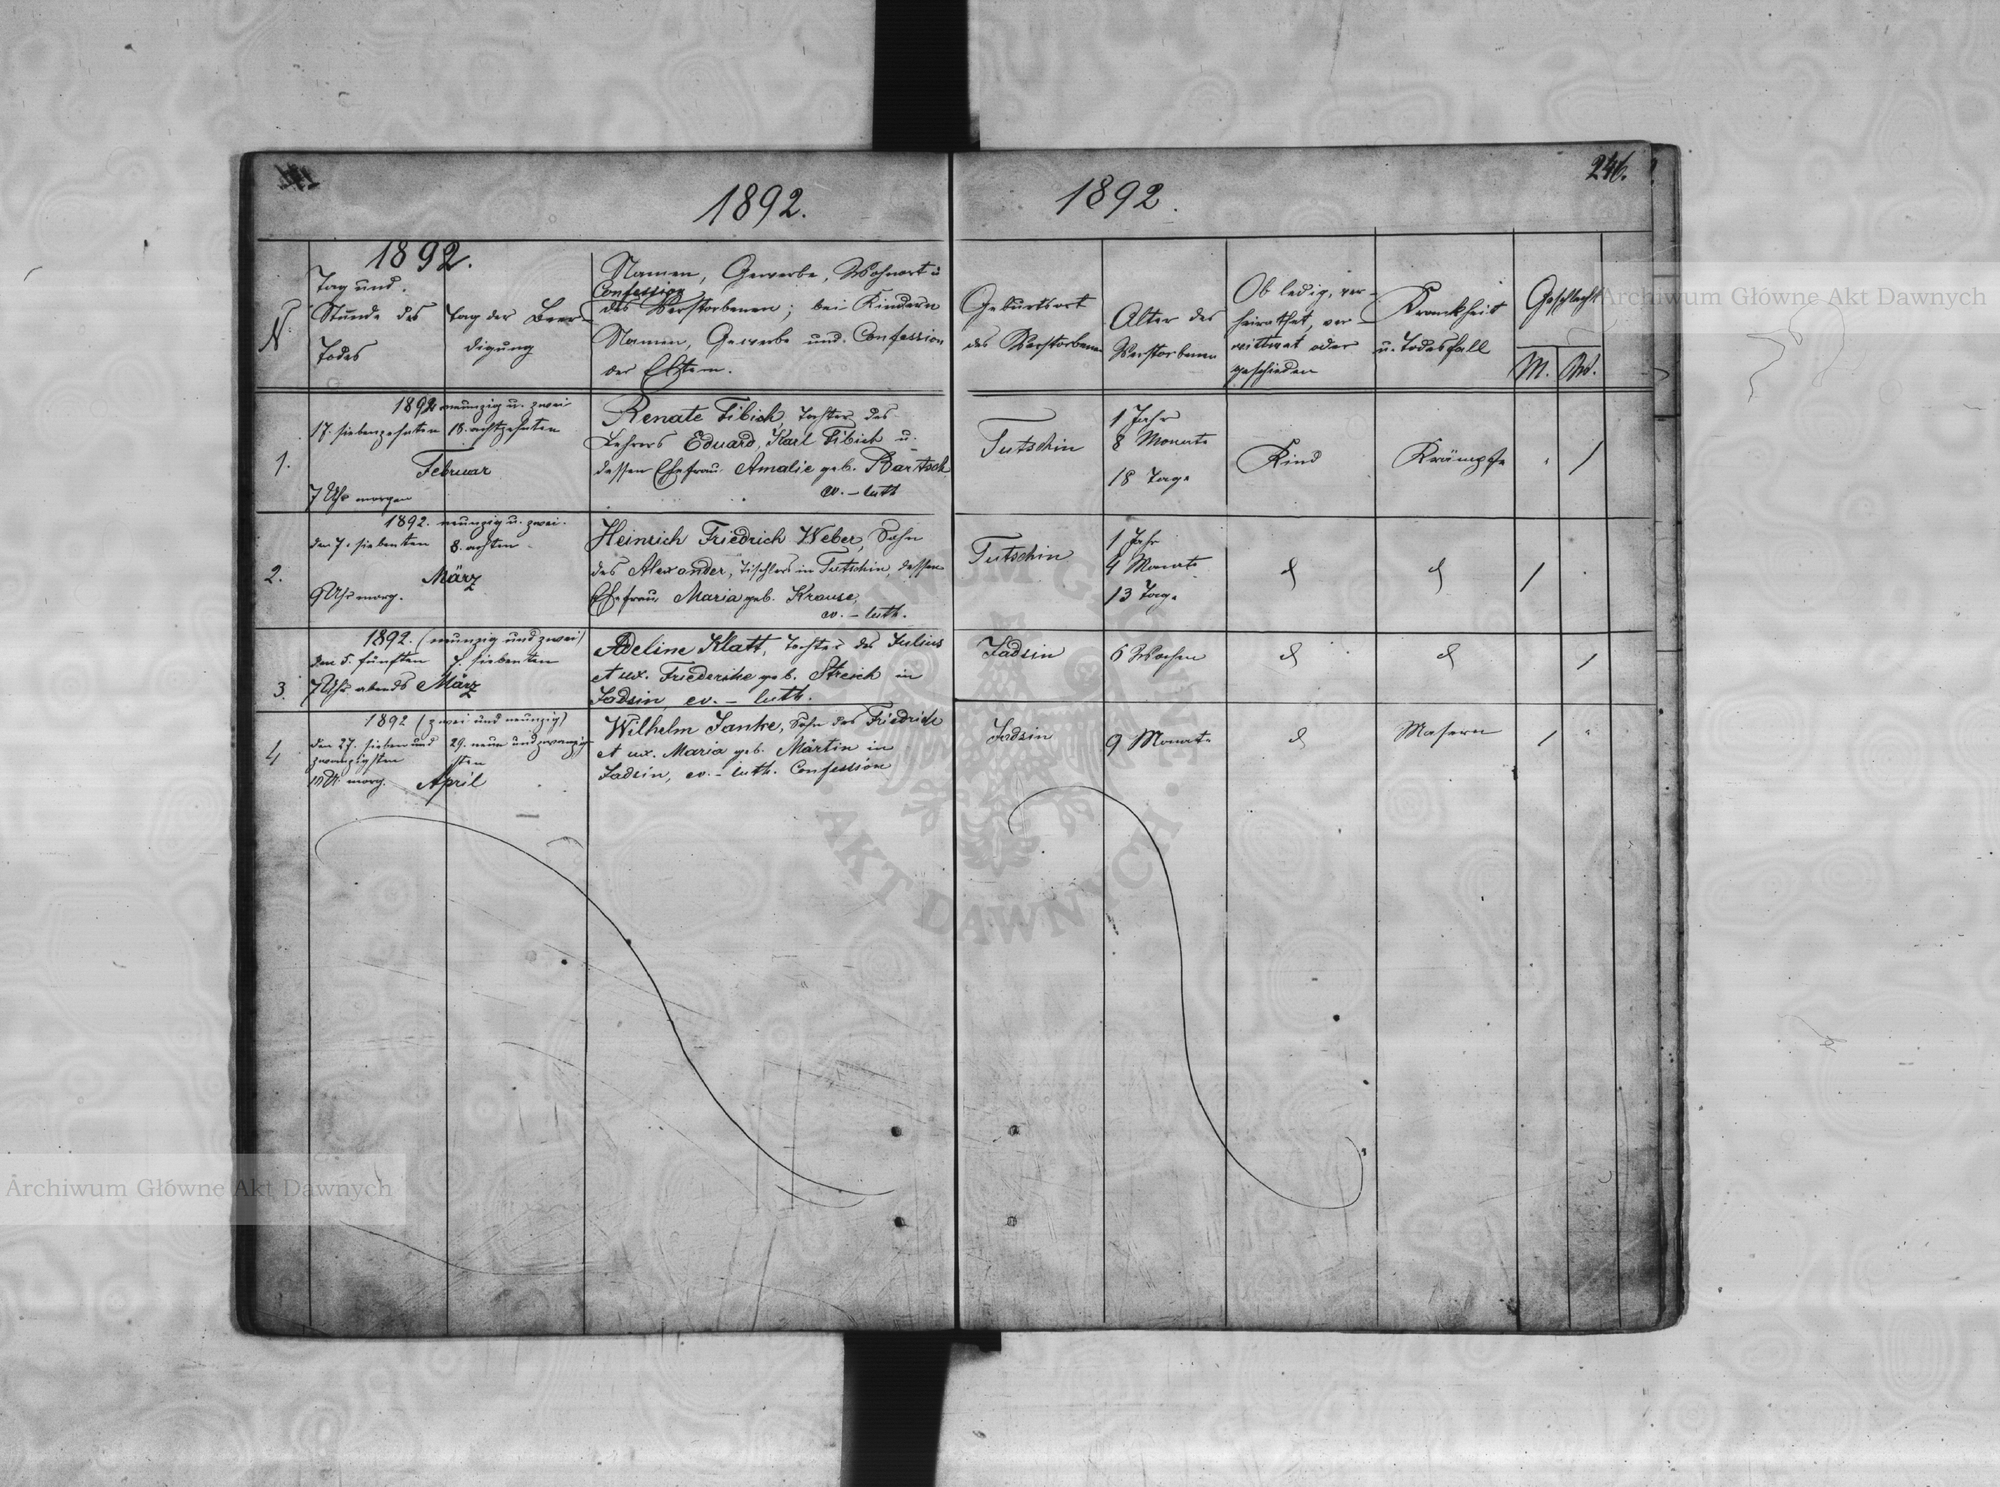 1892.
1892.
246.
1892.
Tag und
Stunde des
Todes
Tag der Beer-
digung
Namen, Gewerbe, Wohnort u
Confession
des Verstorbenen; bei Kindern
Namen, Gewerbe und Confession
der Eltern.
Geburtsort
des Verstorbenen
Alter des
Verstorbenen
Ob ledig, ver-
heirathet, ver-
wittwet oder
geschieden
Krankheit
u. Todesfall
Geschlecht
M. W.
1.
1892 neunzig u. zwei
17. siebenzehnten 18. achtzehnten
Februar
7 Uhr morgen
Renate Fibich, Tochter des
Lehrers Eduard, Karl Fibich u.
dessen Ehefrau Amalie geb. Bartsch
ev. - luth
Tutschin
1 Jahr
8 Monate
18 Tage
Kind
Krämpfe
/
2.
1892. neunzig u. zwei.
den 7. siebenten 8. achten
März
9 Uhr morg.
Heinrich Friedrich Weber, Sohn
des Alexander, Tischlers in Tutschin, dessen
Ehefrau Maria geb. Krause,
ev. - luth.
Tutschin
1 Jahr
4 Monate
13 Tage
d
d
/
3.
1892. (neunzig und zwei)
den 5. fünften 7. siebenten
7 Uhr abends März
Adeline Klatt, Tochter des Julius
et ux. Friederike geb. Streich in
Jadzin ev. - luth.
Jadzin
6 Wochen
d
d
/
4
1892 (zwei und neunzig)
den 27. sieben und 29. neun und zwanzig
zwanzigsten sten
10 U. morg. April
Wilhelm Janke, Sohn des Friedrich
et ux. Maria geb. Märtin in
Jadzin, ev. - luth. Confession
Jadzin
9 Monate
d
Masern
/
Archiwum Główne Akt Dawnych
Archiwum Główne Akt Dawnych
AKT DAWNYCH